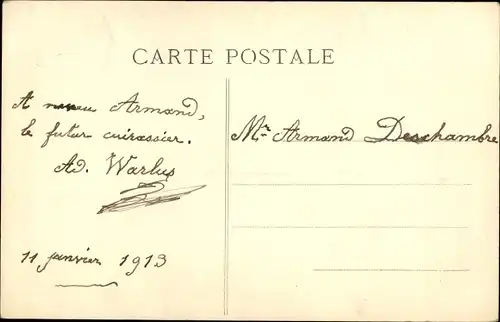 CARTE POSTALE
A Armand,
le futur cuirassier.
Ad. Warlus
11 janvier 1913
Mr Armand Deschambre